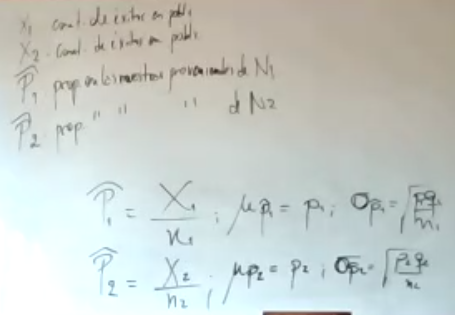 X₁ cant. de éxitos en pobl₁
X₂ cant. de éxitos en pobl₂
P̂₁ prop en las muestras provenientes de N₁
P̂₂ prop " " " d N₂
P̂₁ = X₁/n₁ ; μp̂₁ = p₁ ; σp̂₁ = √(p₁q₁/n₁)
P̂₂ = X₂/n₂ ; μp̂₂ = p₂ ; σp̂₂ = √(p₂q₂/n₂)